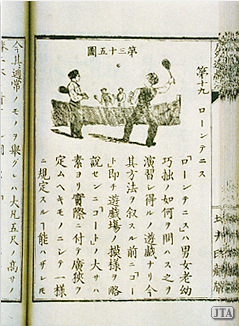 第十九 ローンテニス
第三十五圖
「ローンテニス」ハ男女老幼
巧拙ノ如何ヲ問ハス之ヲ
演習シ得ルノ遊戯ナリ今
其方法ヲ叙スル前ニ「コー
ト」即チ遊戯場ノ摸様ヲ略
説セン「コート」ノ大サハ
素ヨリ實際ニ付テ廣狹ヲ
定ムヘキモノニシテ一様
ニ規定スル能ハザレ
今其通常ノモノヲ擧クレハ大凡五尺ノ高サ
JTA